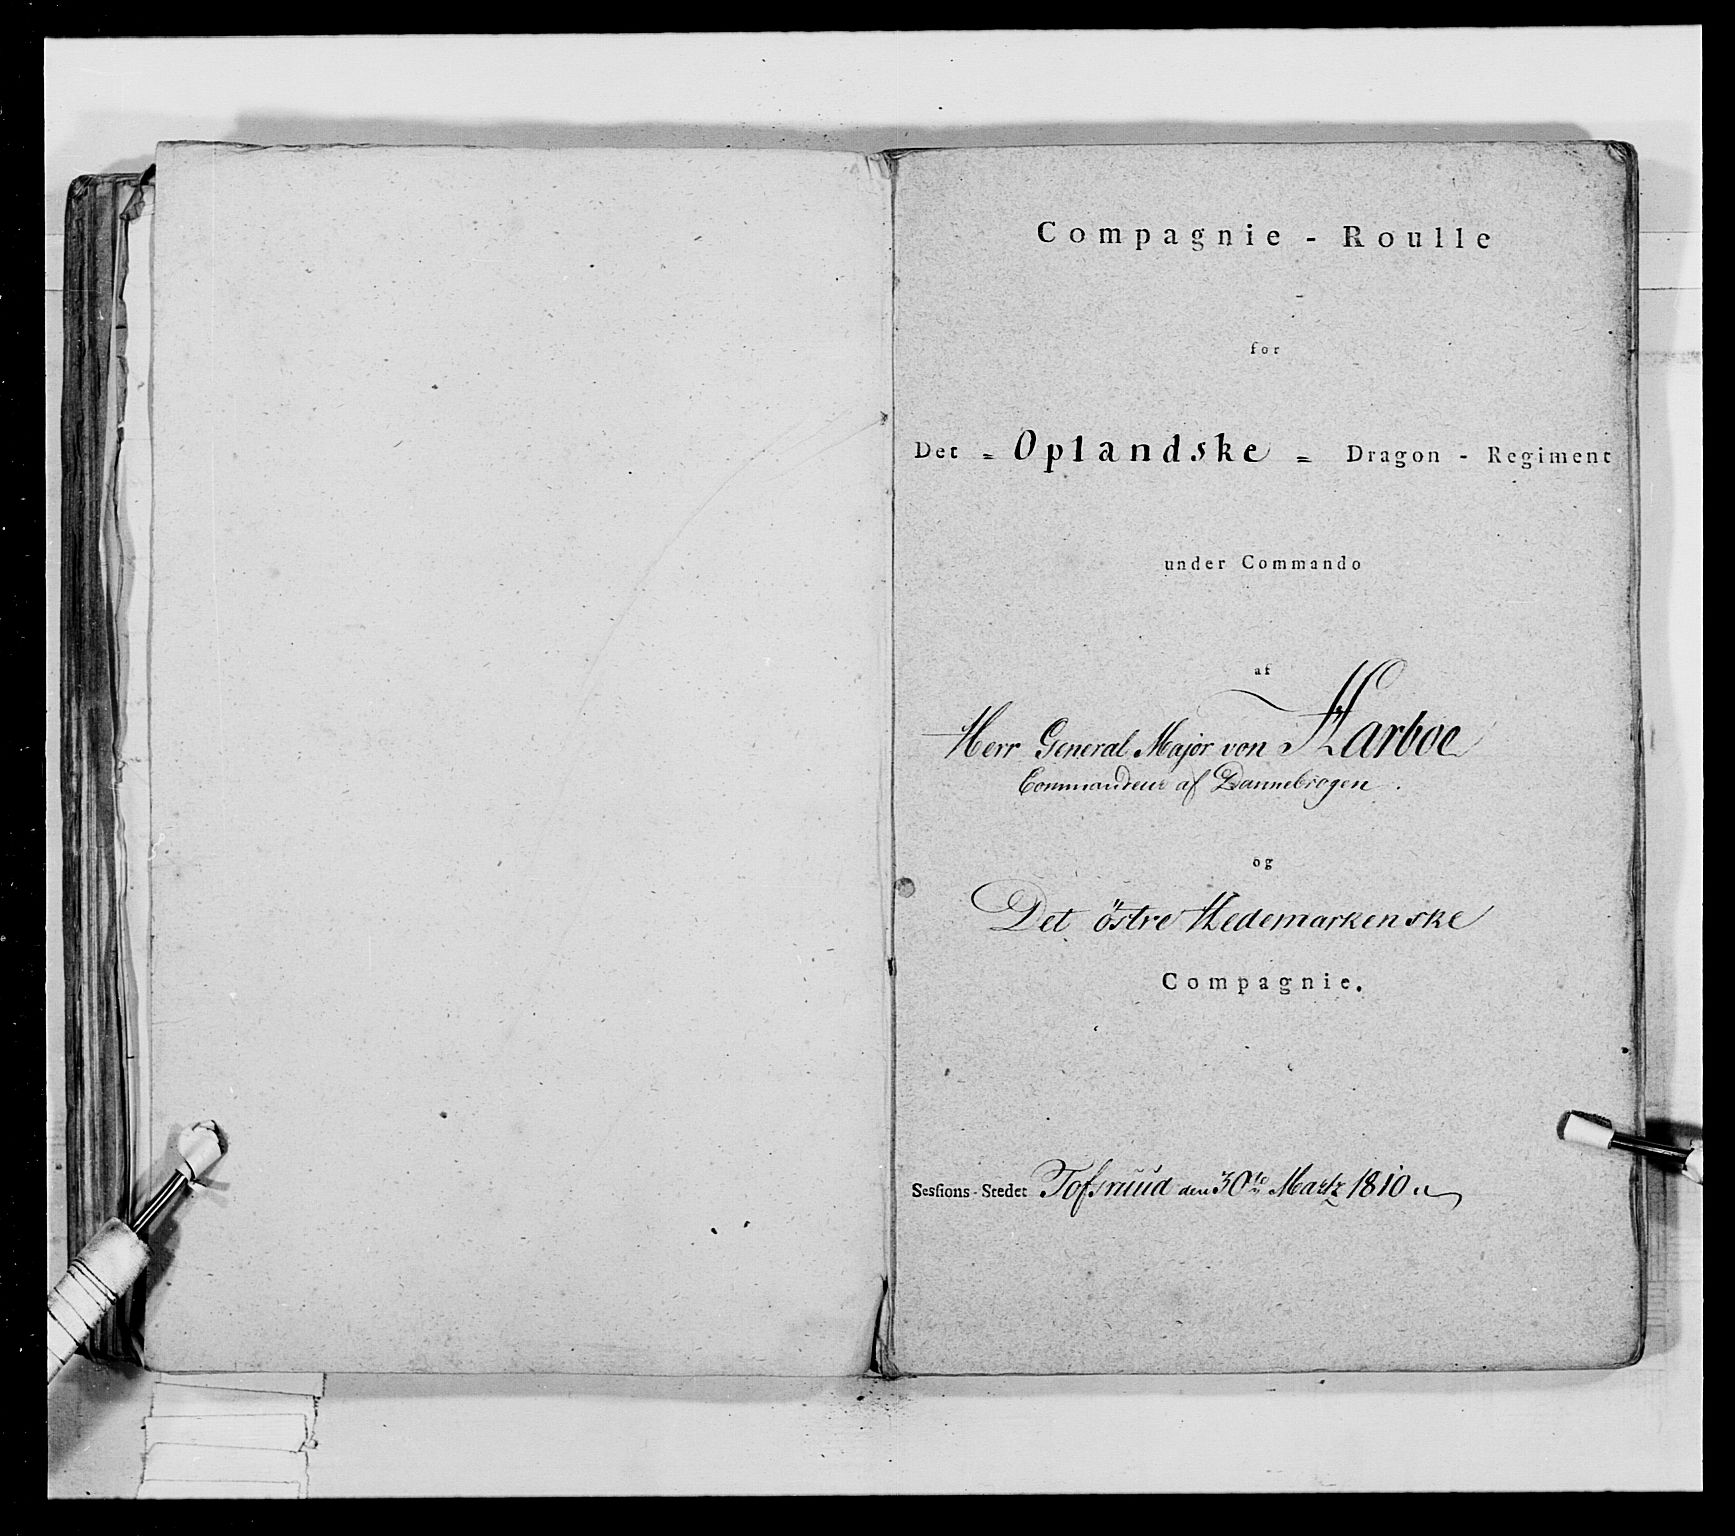 Compagnie - Roulle
for
Det = Oplandske = Dragon - Regiment
under Commando
af
Herr General Major von Harboe
Commandeur af Dannebrogen.
og
Det östre Hedemarkenske
Compagnie.
Sessions-Stedet Tofsruud den 30te Martz 1810